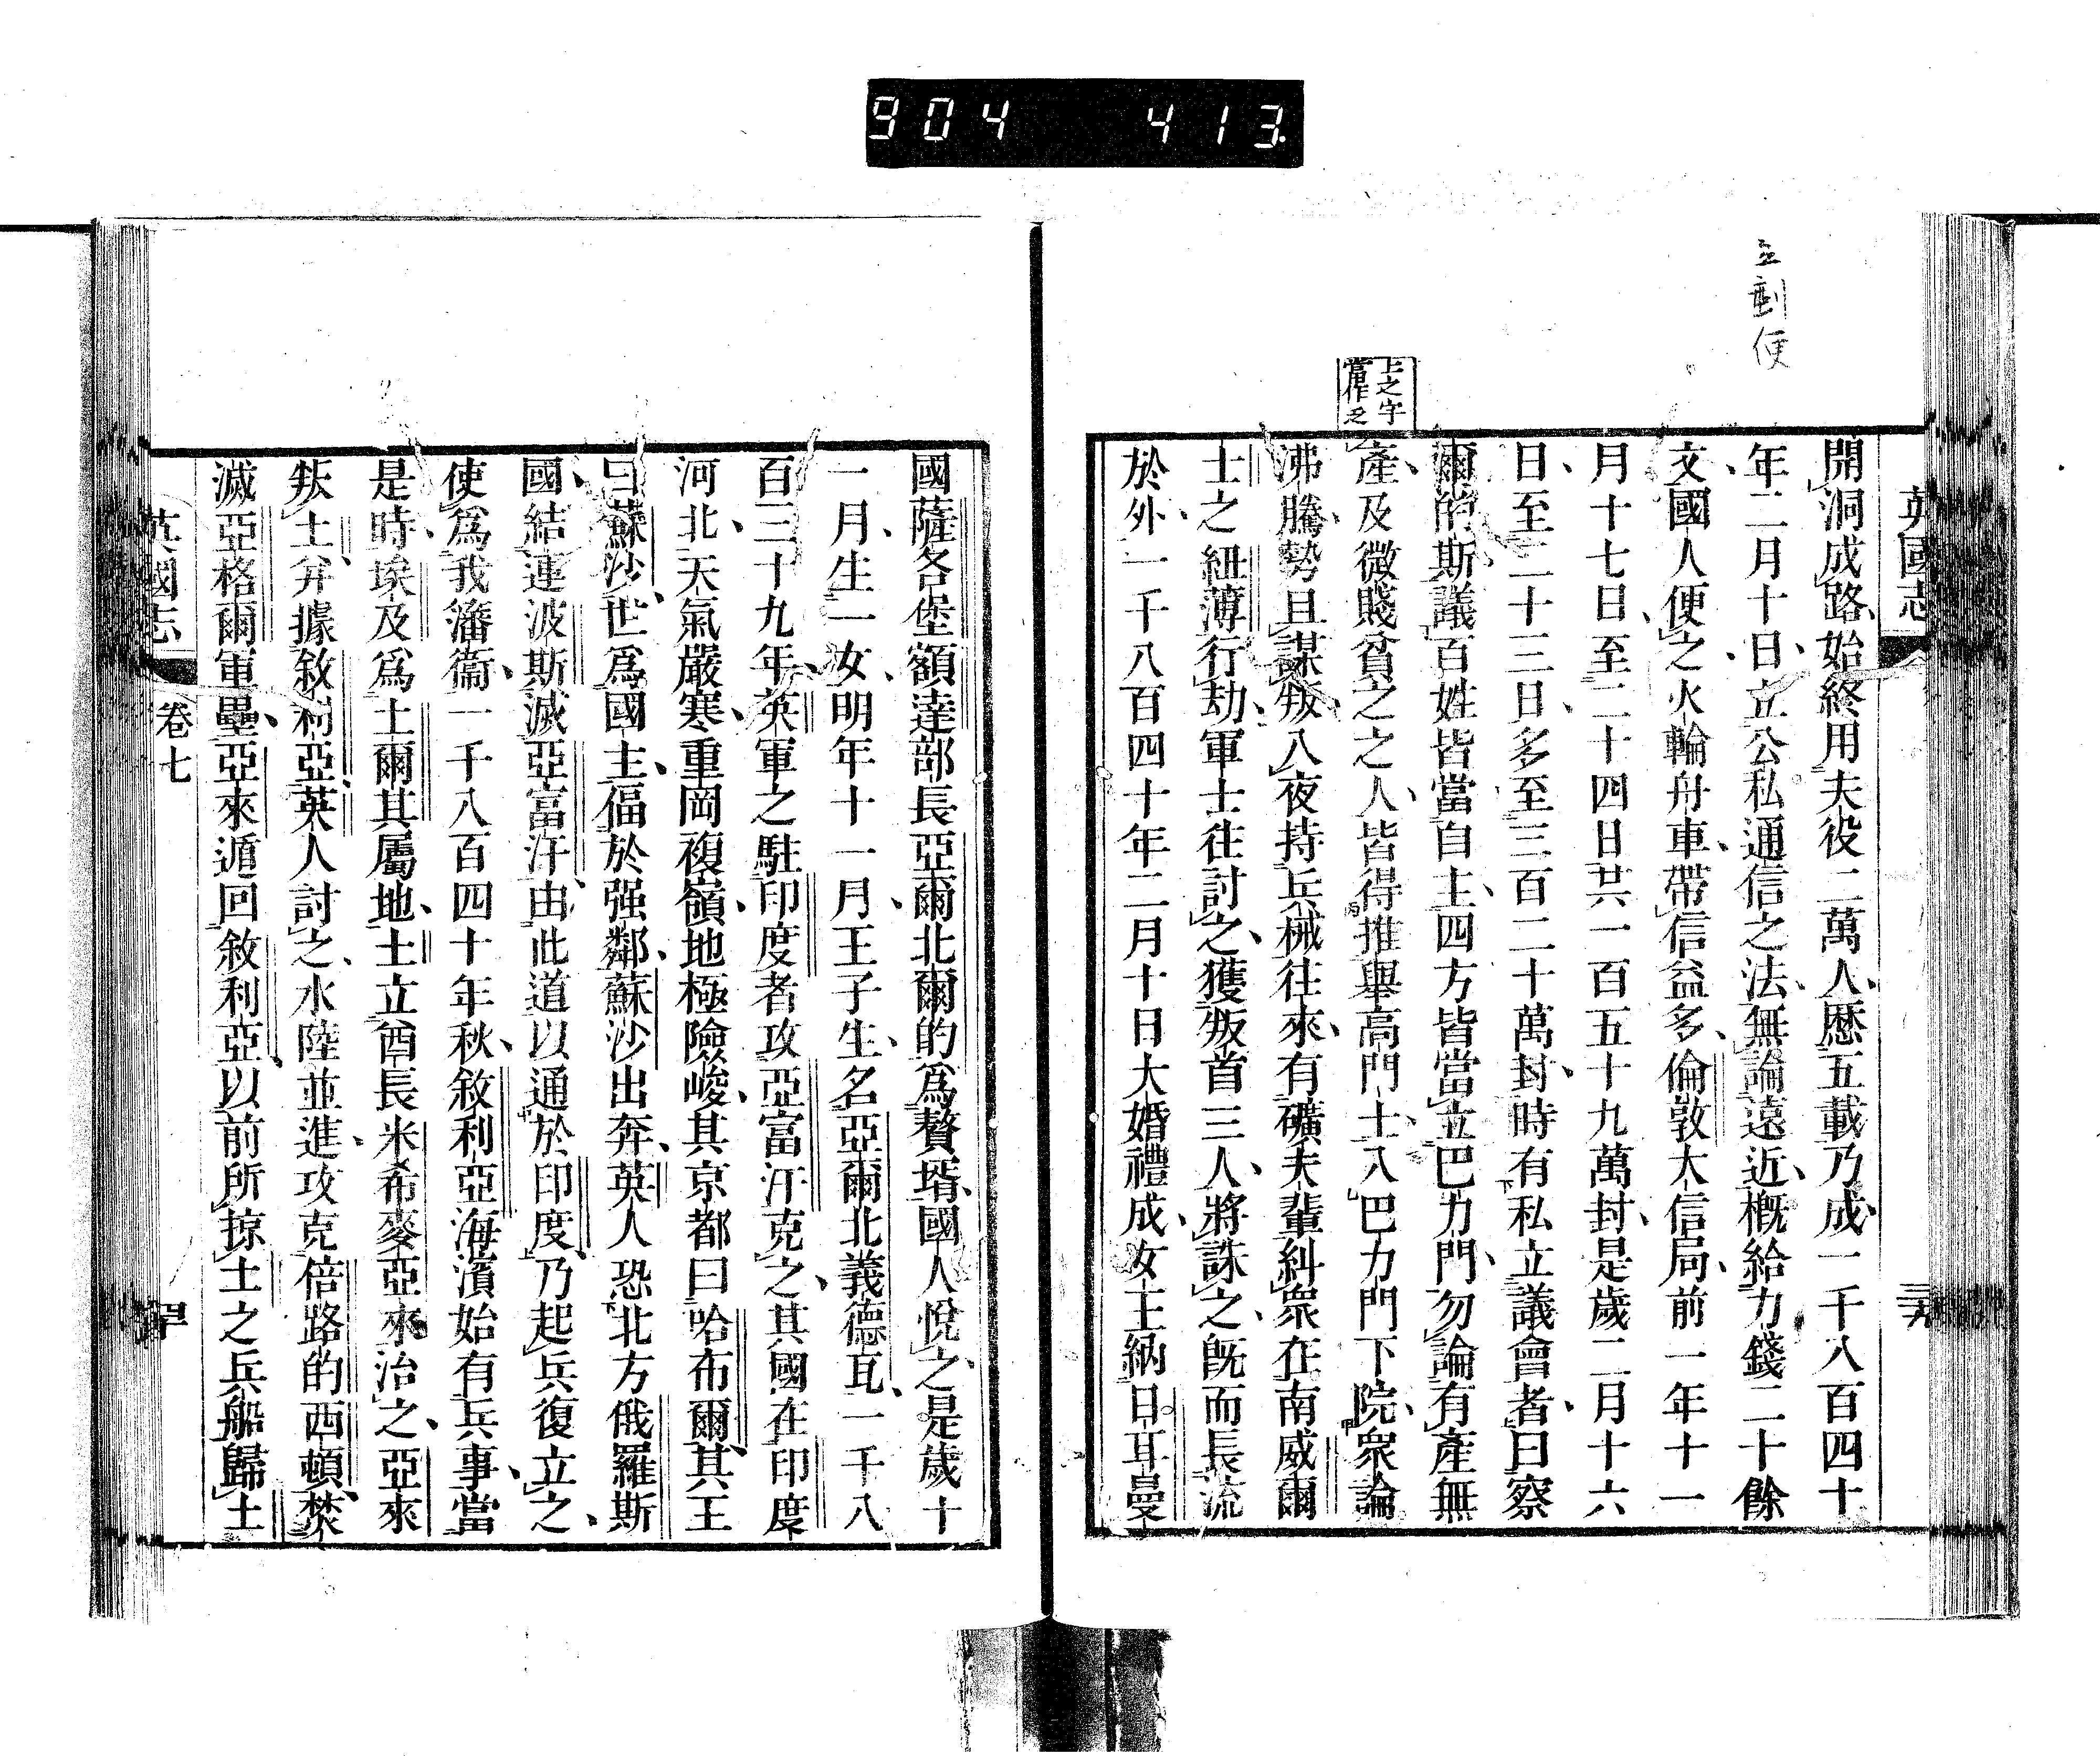 904 413
英國志
三十九
開洞成路、始終用夫役二萬人、歷五載乃成、一千八百四十
年二月十日、立公私通信之法、無論遠近、概給力錢二十餘
文、國人便之、火輪舟車、帶信益多、倫敦大信局、前一年十一
月十七日、至二十四日共一百五十九萬封、是歲二月十六
日、至二十三日、多至三百二十萬封、時有私立議會者、曰察
爾的斯議、百姓皆當自主、四方皆當立巴力門、勿論有產無
產、及微賤貧之之人、皆得推舉高門士、入巴力門下院、衆論
沸騰、勢且謀叛、入夜持兵械往來、有礦夫輩糾衆在南威爾
士之紐薄行劫、軍士往討之、獲叛首三人、將誅之、旣而長流
於外、一千八百四十年二月十日大婚禮成、女主納日耳曼
上之字
當作乏
國薩各堡額達部長亞爾北爾的爲贅壻、國人悅之、是歲十
一月、生一女、明年十一月、王子生、名亞爾北義德瓦、一千八
百三十九年、英軍之駐印度者攻亞富汗克之、其國在印度
河北、天氣嚴寒、重岡複嶺、地極險峻、其京都曰哈布爾、其王
曰蘇沙、世爲國主、偪於强鄰、蘇沙出奔、英人恐北方俄羅斯
國、結連波斯滅亞富汗、由此道以通於印度、乃起兵復立之、
使爲我藩衞、一千八百四十年秋、敘利亞海濱始有兵事、當
是時、埃及爲土爾其屬地、土立酋長米希麥亞來治之、亞來
叛土、并據敘利亞、英人討之、水陸並進、攻克倍路的西頓、焚
滅亞格爾軍壘、亞來遁回敘利亞、以前所掠土之兵船歸土
英國志
卷七
四十